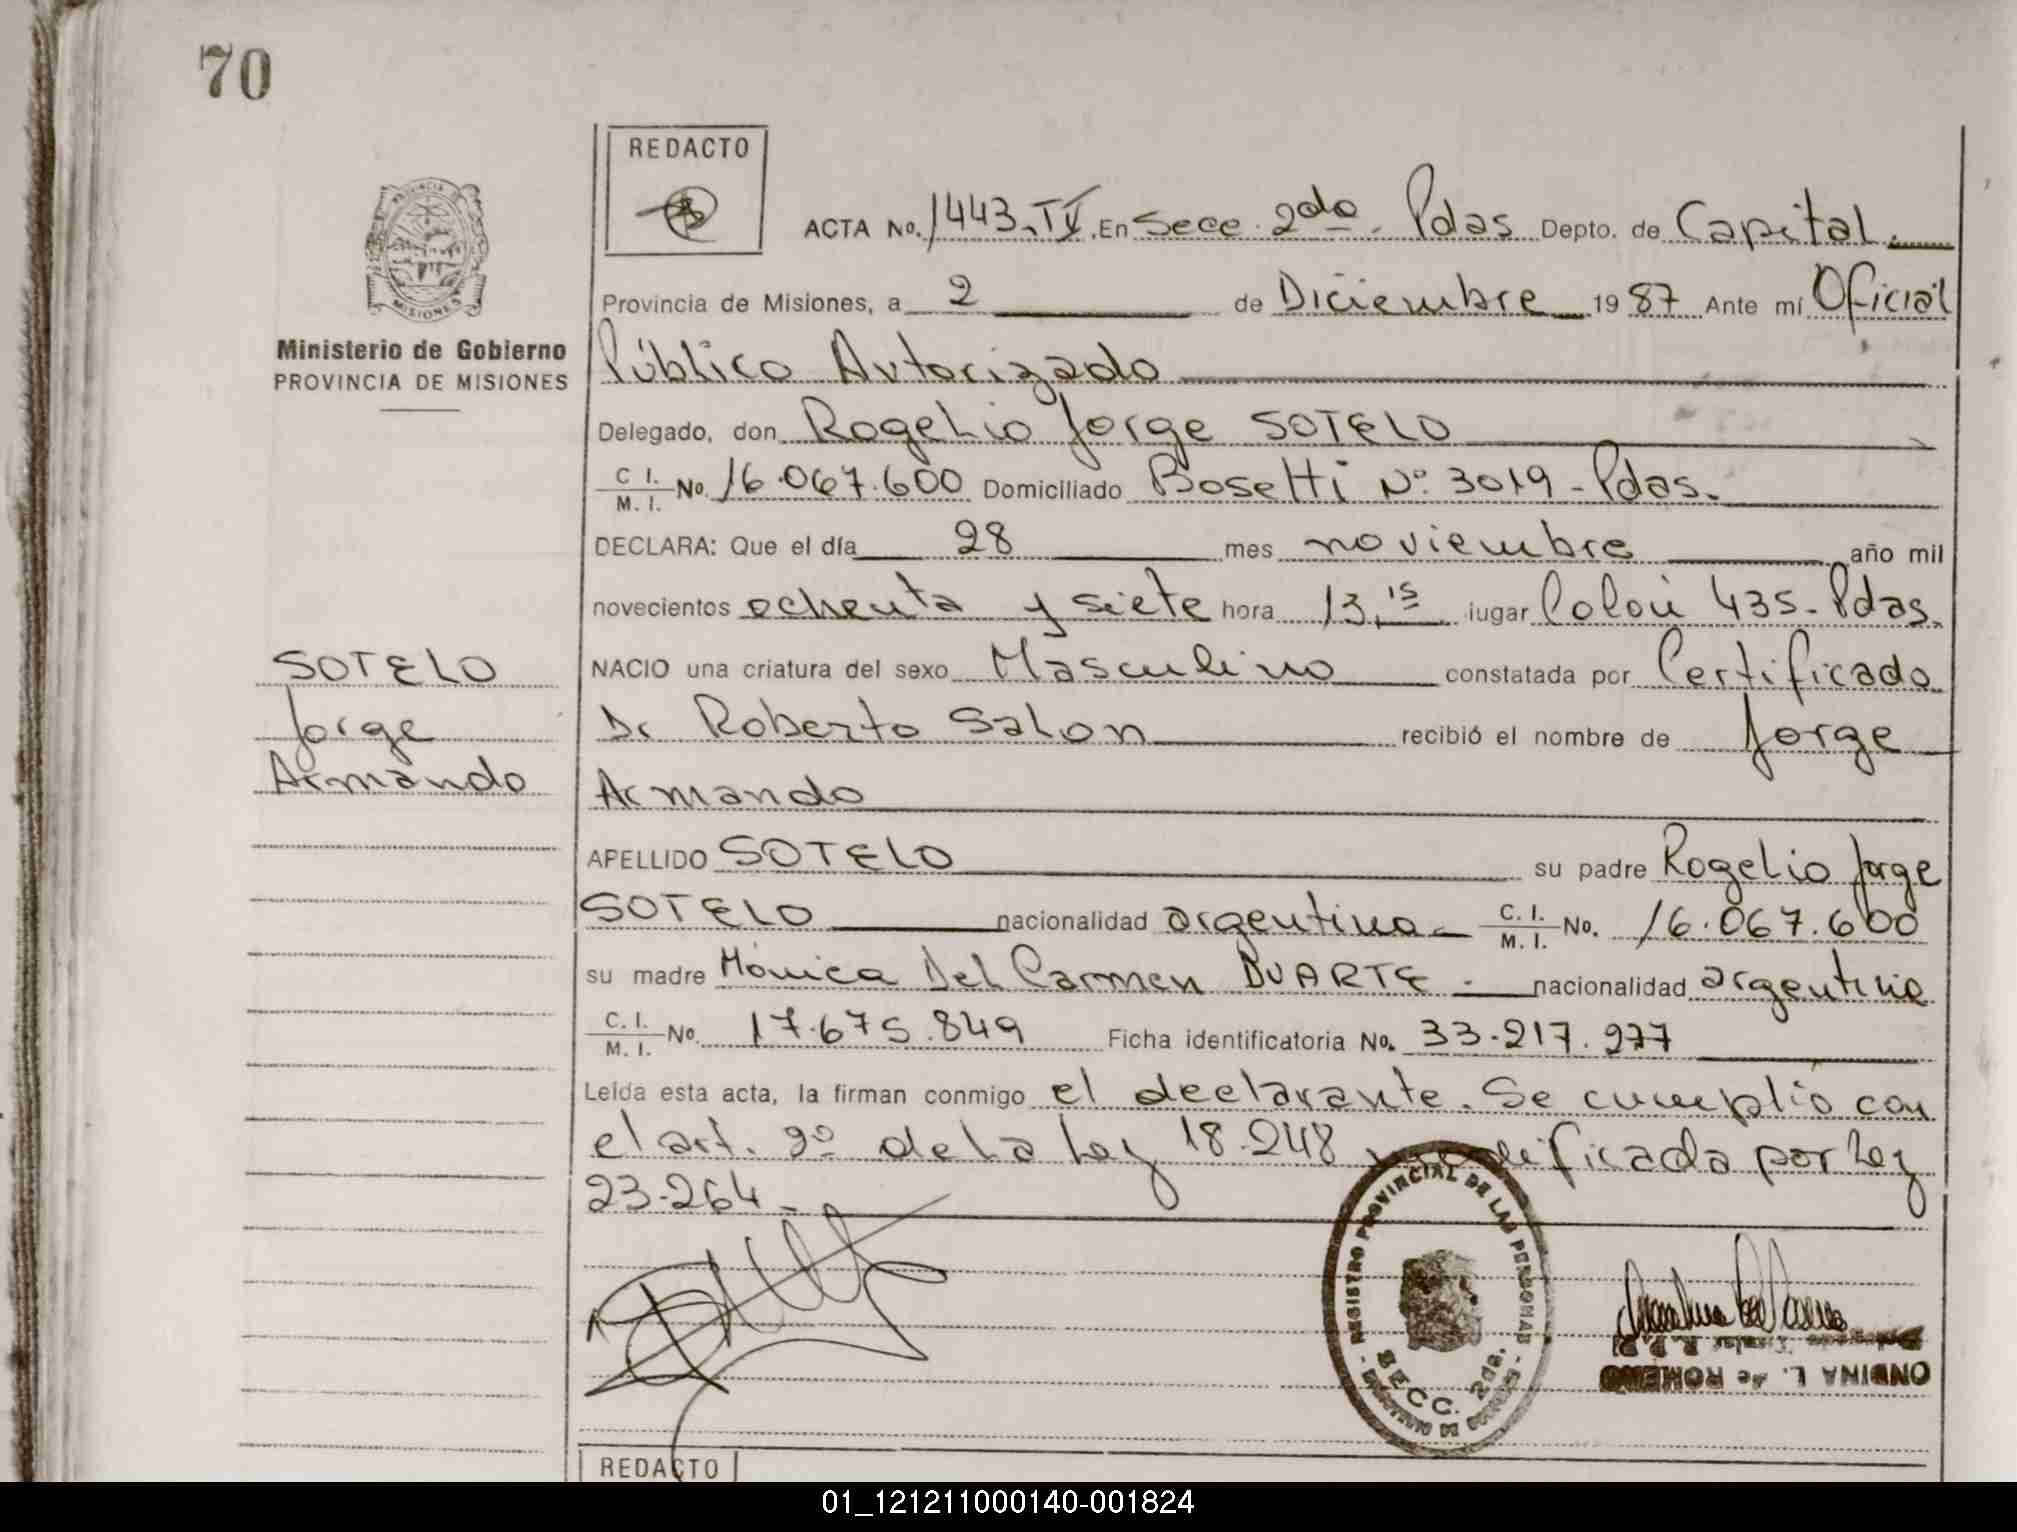 70
REDACTO
ACTA No. 1443. TV. En Secc. 2do. Pdas Depto. de Capital.
Provincia de Misiones, a 2 de Diciembre 19 87 Ante mí Oficial
Ministerio de Gobierno
PROVINCIA DE MISIONES
Público Autorizado
Delegado, don Rogelio Jorge SOTELO
C I. / M. I. No. 16.067.600 Domiciliado Bosetti No. 3019 - Pdas.
DECLARA: Que el día 28 mes noviembre año mil
novecientos ochenta y siete hora 13,15 lugar Colón 435 - Pdas.
NACIO una criatura del sexo Masculino constatada por Certificado
Dr Roberto Salon recibió el nombre de Jorge
Armando
SOTELO
Jorge
Armando
APELLIDO SOTELO su padre Rogelio Jorge
SOTELO nacionalidad argentina - C. I. / M. I. No. 16.067.600
su madre Mónica Del Carmen DUARTE - nacionalidad argentina
C. I. / M. I. No. 17.675.849 Ficha identificatoria No. 33.217.277
Leída esta acta, la firman conmigo el declarante. Se cumplió con
el art. 2º de la ley 18.248 modificada por ley
23.264.
REGISTRO PROVINCIAL DE LAS PERSONAS
SECC. 2da.
Titular R.P.P.
ONDINA L. de ROMERO
REDACTO
01_121211000140-001824